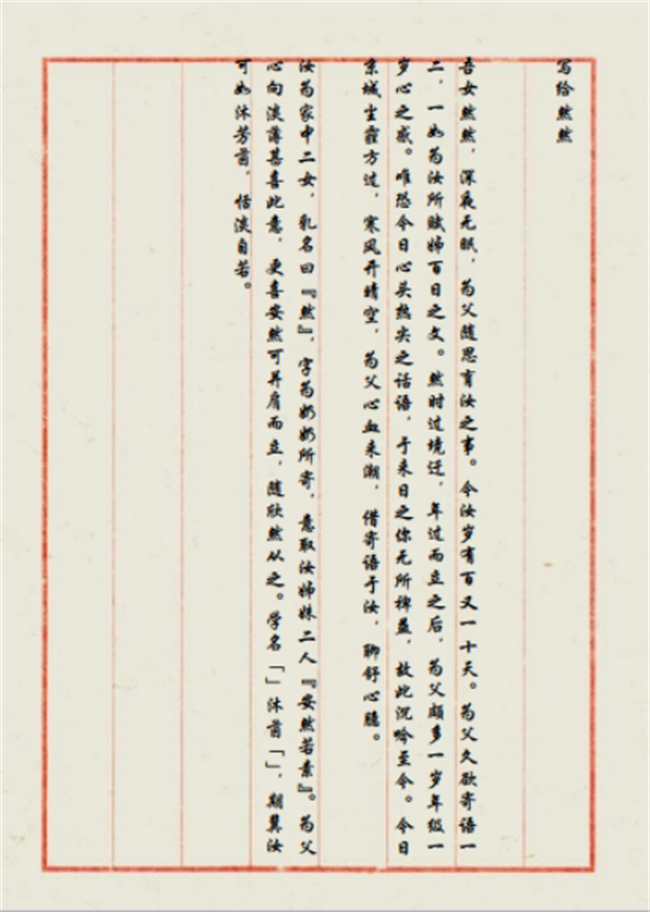 写给然然
吾女然然，深夜无眠，为父随思育汝之事。今汝岁有百又一十天。为父久欲寄语一
二，一如为汝所赋姊百日之文。然时过境迁，年过而立之后，为父颇多一岁年级一
岁心之感。唯恐今日心头热尖之话语，于来日之你无所裨益，故此沉吟至今。今日
京城尘霾方过，寒风开晴空，为父心血来潮，借寄语于汝，聊舒心臆。
汝为家中二女，乳名曰『然』，字为奶奶所寄，意取汝姊妹二人『安然若素』。为父
心向淡薄甚喜此意，更喜安然可并肩而立，随欣然从之。学名「」沐茵「」，期冀汝
可如沐芳茵，恬淡自若。